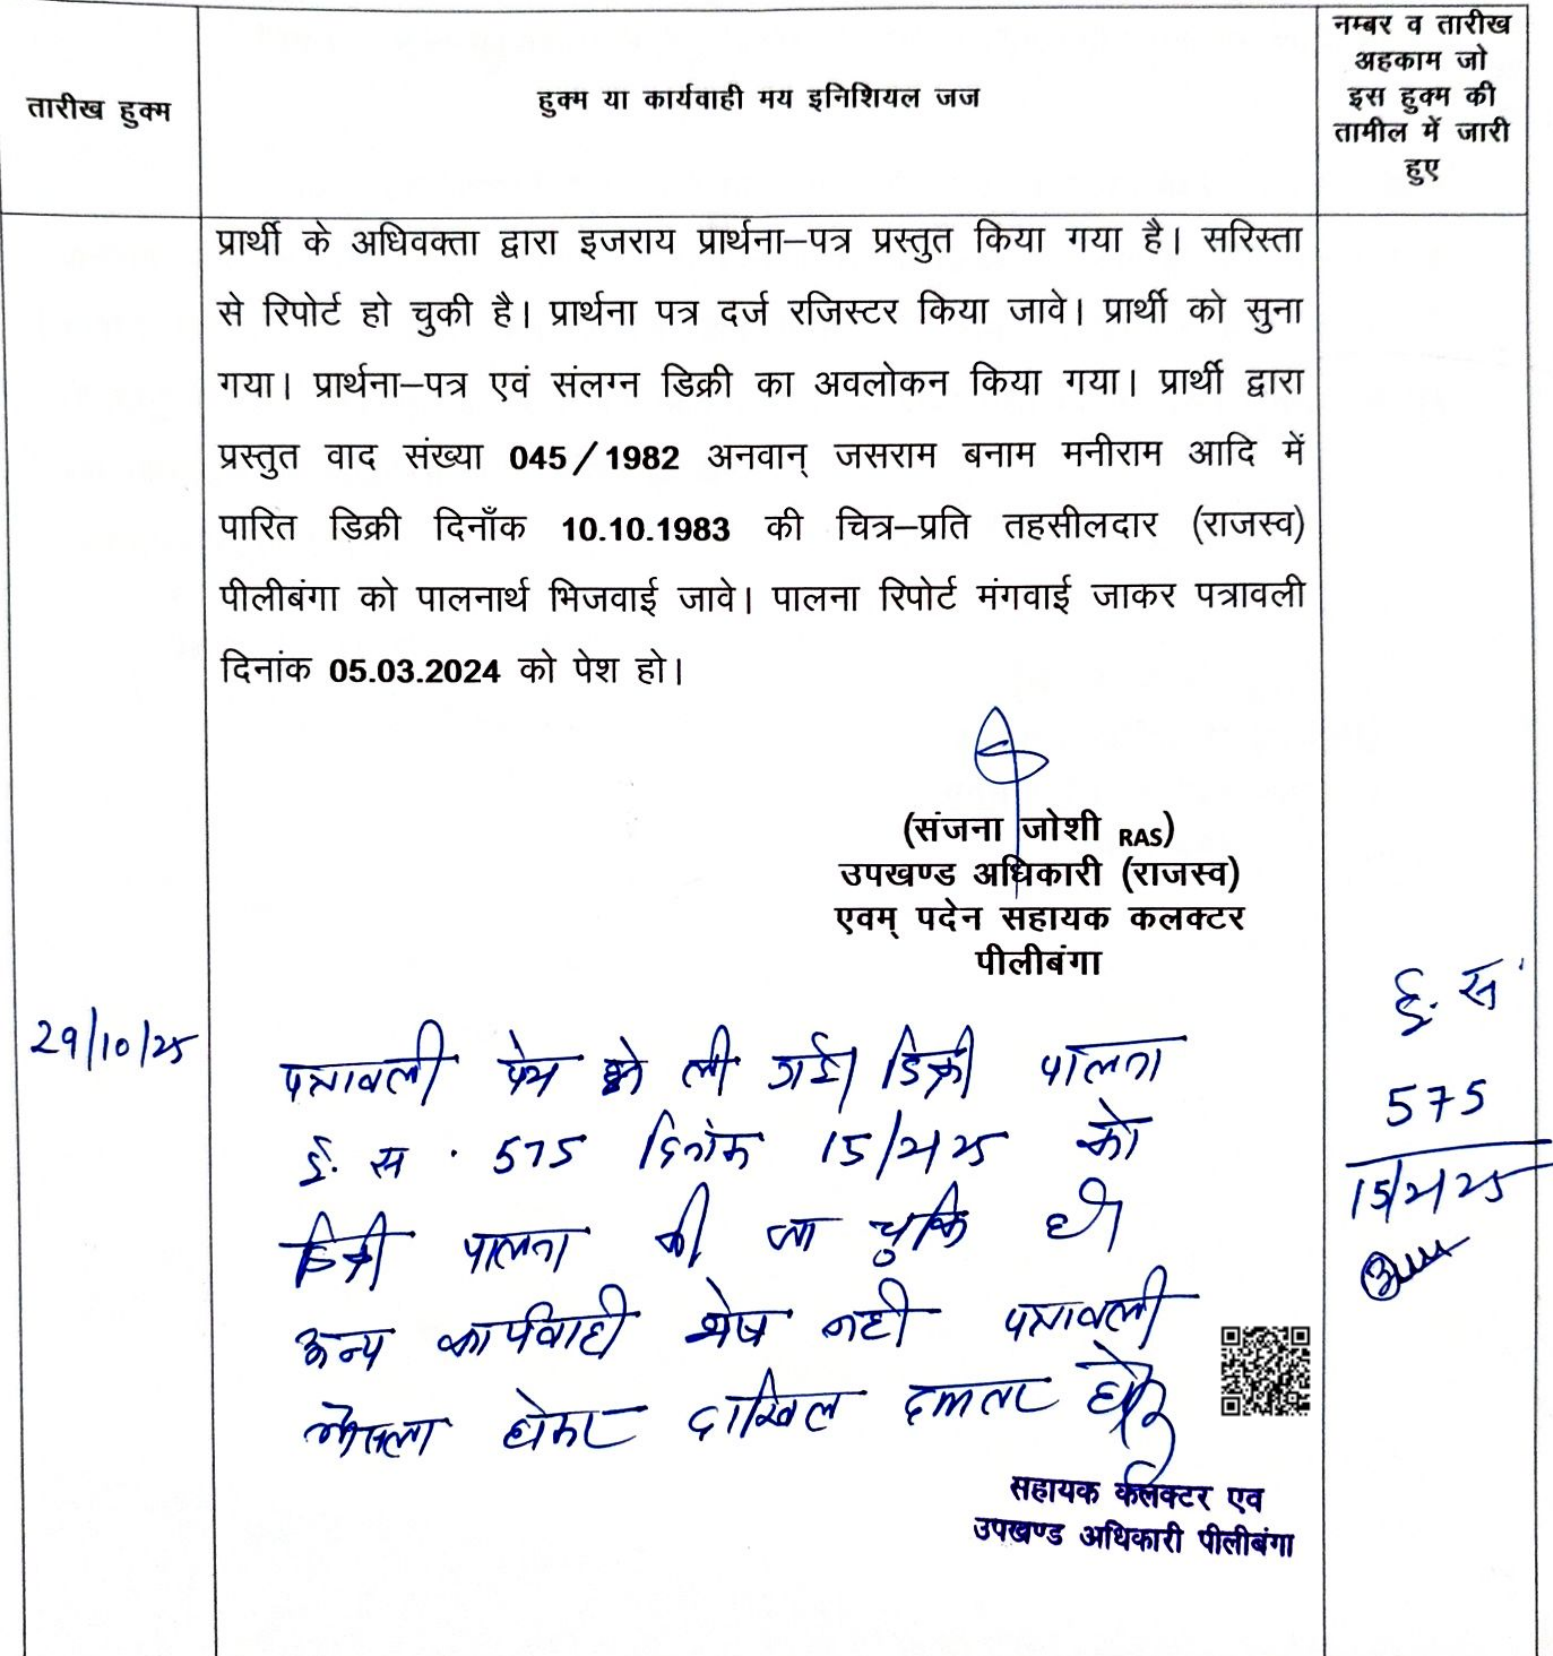 तारीख हुक्म
हुक्म या कार्यवाही मय इनिशियल जज
नम्बर व तारीख
अहकाम जो
इस हुक्म की
तामील में जारी
हुए
प्रार्थी के अधिवक्ता द्वारा इजराय प्रार्थना–पत्र प्रस्तुत किया गया है। सरिस्ता
से रिपोर्ट हो चुकी है। प्रार्थना पत्र दर्ज रजिस्टर किया जावे। प्रार्थी को सुना
गया। प्रार्थना–पत्र एवं संलग्न डिक्री का अवलोकन किया गया। प्रार्थी द्वारा
प्रस्तुत वाद संख्या 045/1982 अनवान् जसराम बनाम मनीराम आदि में
पारित डिक्री दिनाँक 10.10.1983 की चित्र–प्रति तहसीलदार (राजस्व)
पीलीबंगा को पालनार्थ भिजवाई जावे। पालना रिपोर्ट मंगवाई जाकर पत्रावली
दिनांक 05.03.2024 को पेश हो।
(संजना जोशी RAS)
उपखण्ड अधिकारी (राजस्व)
एवम् पदेन सहायक कलक्टर
पीलीबंगा
29/10/25
पत्रावली पेश ली गई। डिक्री पालना
ई. स. 575 दिनांक 15/2/25 को
डिक्री पालना की जा चुकि है।
अन्य कार्यवाही शेष नही पत्रावली
फैसला होकर दाखिल दफ्तर हो
ई. स.
575
15/2/25
सहायक कलक्टर एव
उपखण्ड अधिकारी पीलीबंगा